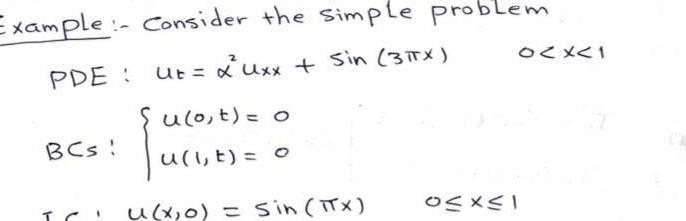 Example :- Consider the simple problem
PDE : ut = α² uxx + Sin (3πx) 0<x<1
BCs : { u(0,t) = 0
u(1,t) = 0
u(x,0) = Sin (πx) 0≤x≤1